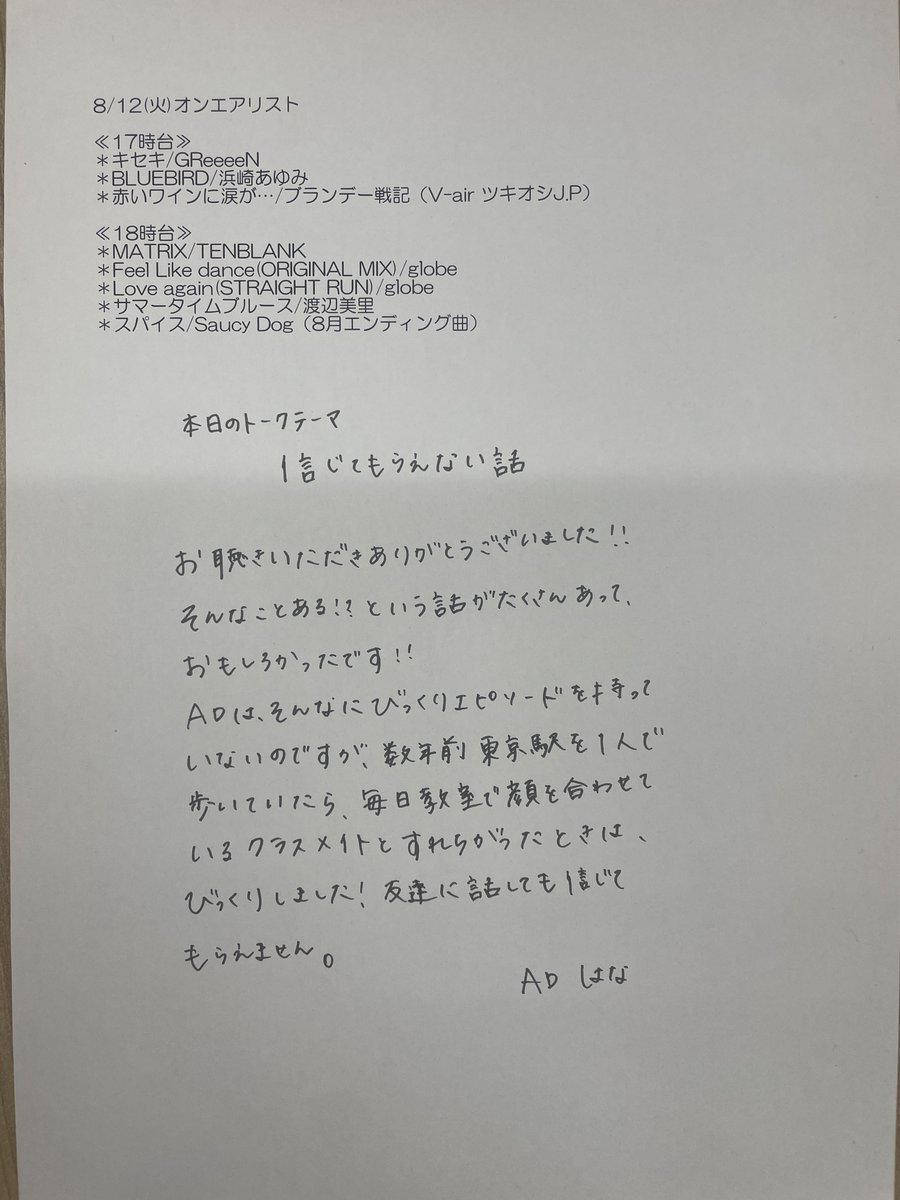 8/12(火)オンエアリスト
≪17時台≫
＊キセキ/GReeeeN
＊BLUEBIRD/浜崎あゆみ
＊赤いワインに涙が…/ブランデー戦記（V-air ツキオシJ.P）
≪18時台≫
＊MATRIX/TENBLANK
＊Feel Like dance(ORIGINAL MIX)/globe
＊Love again(STRAIGHT RUN)/globe
＊サマータイムブルース/渡辺美里
＊スパイス/Saucy Dog（8月エンディング曲）
本日のトークテーマ
信じてもらえない話
お聴きいただきありがとうございました!!
そんなことある!?という話がたくさんあって、
おもしろかったです!!
ADは、そんなにびっくりエピソードを持って
いないのですが、数年前東京駅を1人で
歩いていたら、毎日教室で顔を合わせて
いるクラスメイトとすれちがったときは、
びっくりしました!友達に話しても信じて
もらえません。
AD はな